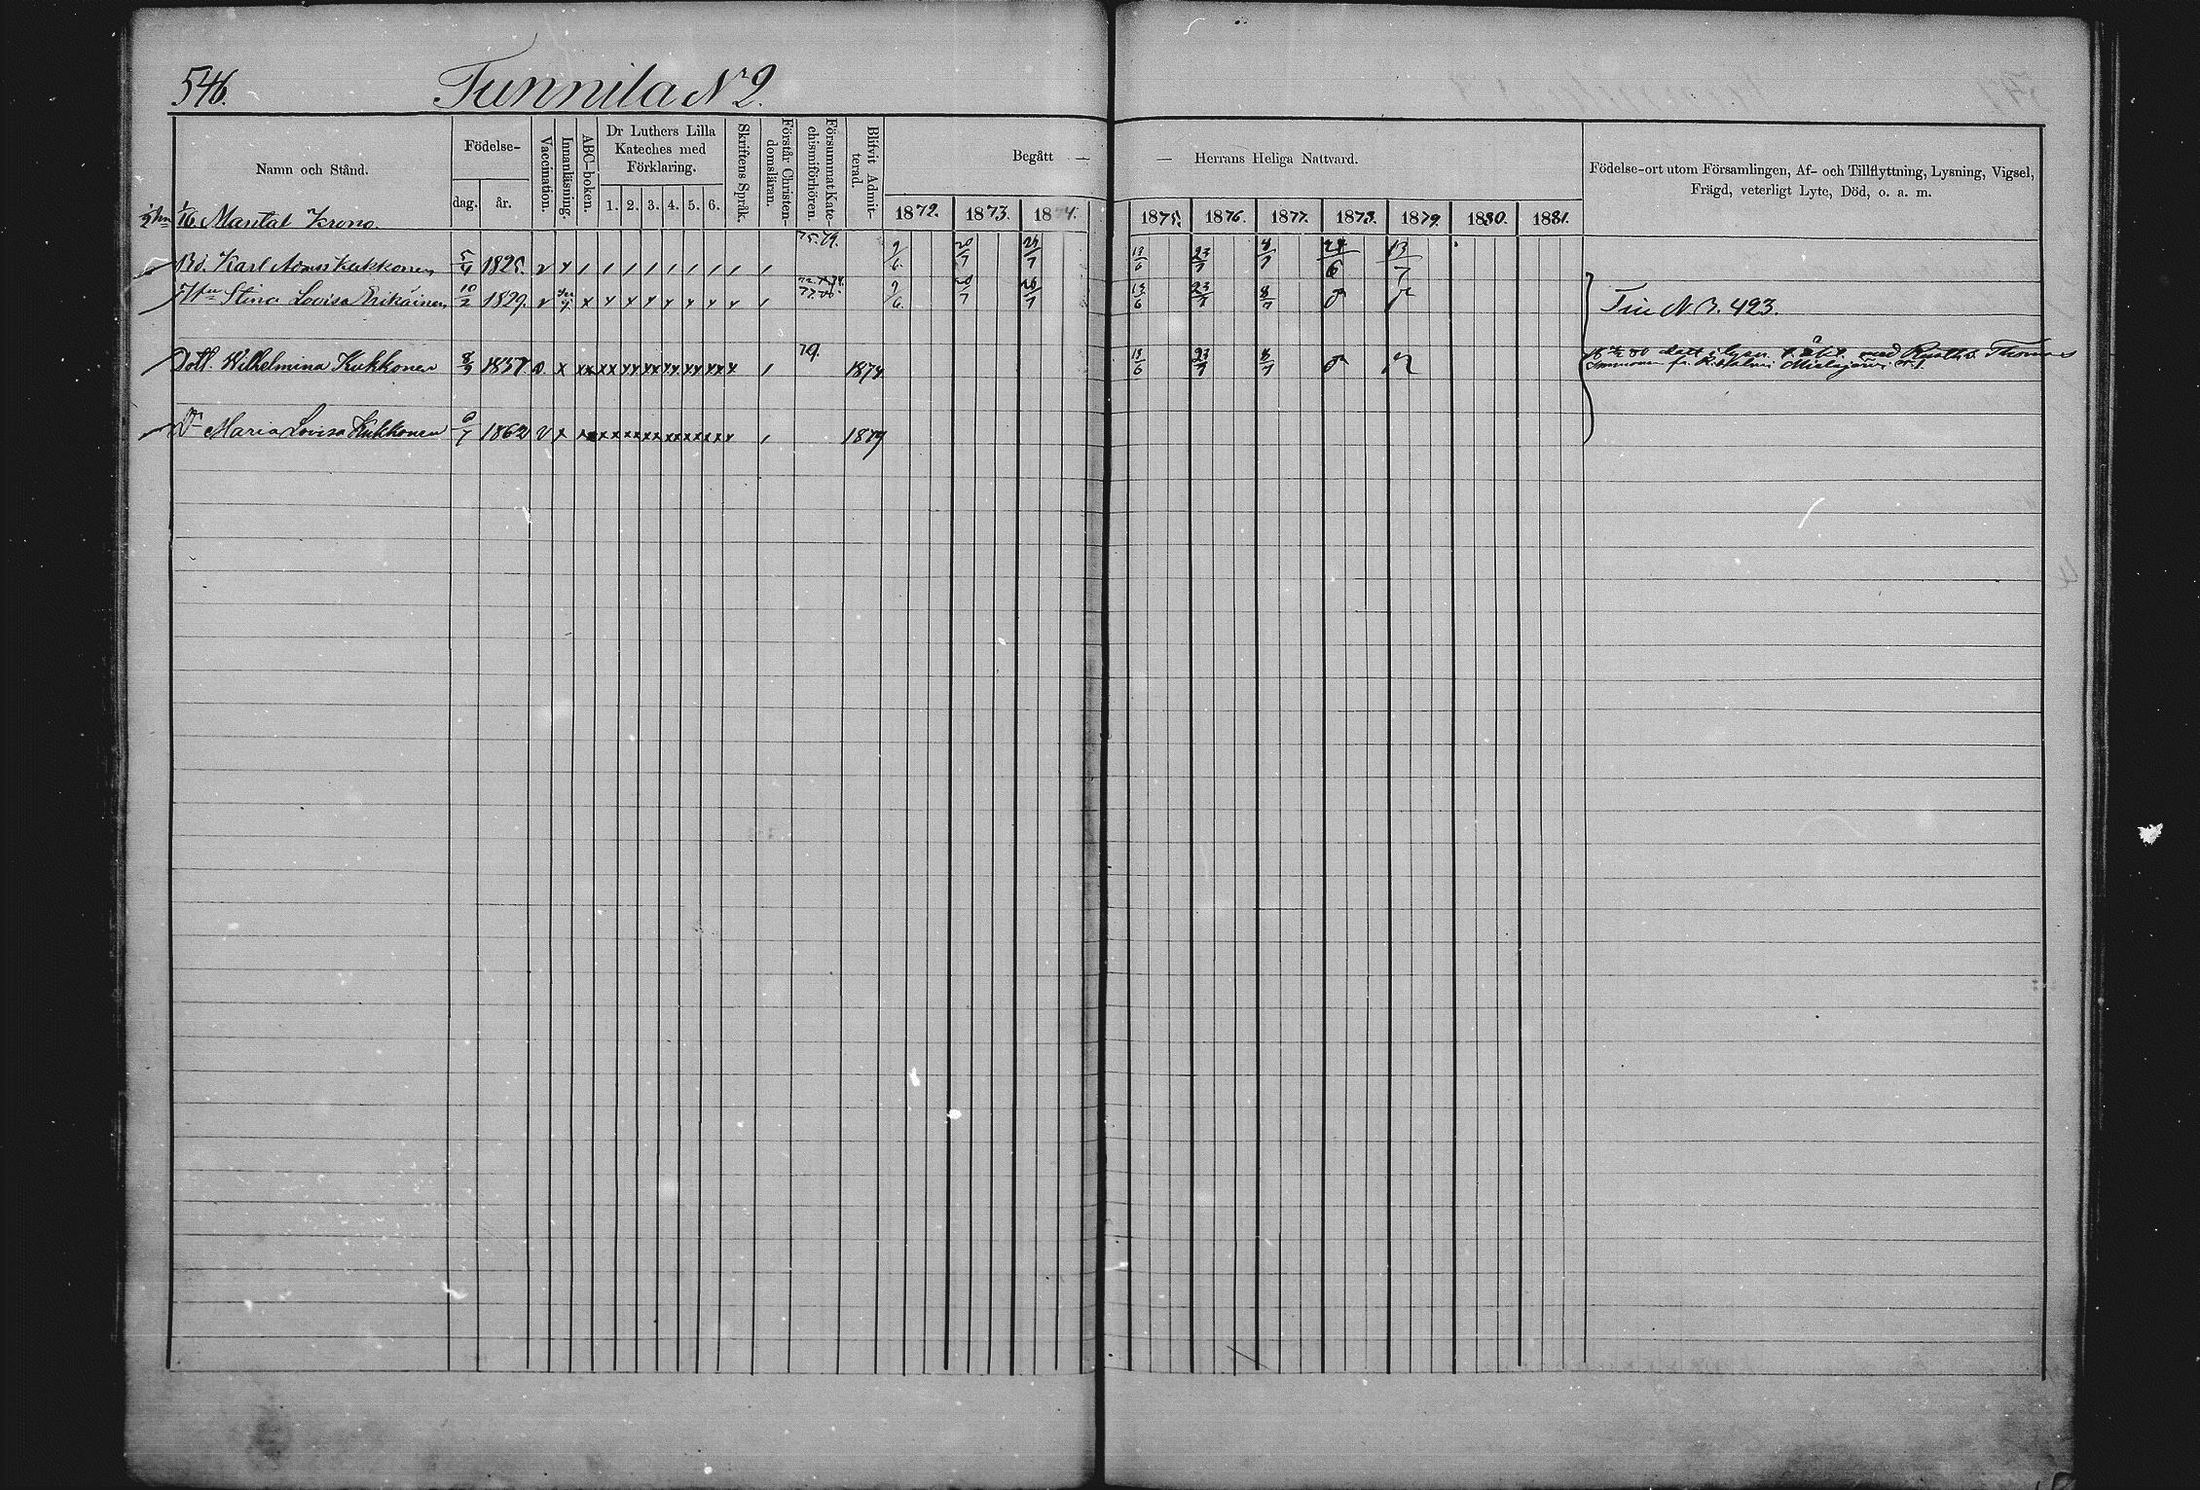 546. Tunnila N 2.
Namn och Stånd.
Födelse-
dag. år.
Vaccination.
Innanläsning.
ABC-boken.
Dr Luthers Lilla
Kateches med
Förklaring.
1. 2. 3. 4. 5. 6.
Skriftens Språk.
Förstår Christen-
domsläran.
Försummat Kate-
chismiförhören.
Blifvit Admit-
terad.
Begått — — Herrans Heliga Nattvard.
1872. 1873. 1874. 1875. 1876. 1877. 1878. 1879. 1880. 1881.
Födelse-ort utom Församlingen, Af- och Tillflyttning, Lysning, Vigsel,
Frägd, veterligt Lyte, Död, o. a. m.
1/16 Mantal Krono.
Bd. Karl Kukkonen 5/4 1825. v x / / / / / / / / / 75.79. 9/6 20/7 13/6 23/7 8/7 13/7
Hu Stina Lovisa Erikäinen 10/2 1829. v x x x x x x x x x / 9/6 20/7 26/7 13/6 23/7 8/7
Tui N 3. 493.
Dott. Wilhelmina Kukkonen 8/9 1857 v x xx xx xx xx xx xx xx x / 79. 1874 13/6 23/7 8/7
med Thomas
Immonen
Dn Maria Lovisa Kukkonen 1862 v x xx xx xx xx xx xx xx x / 1879